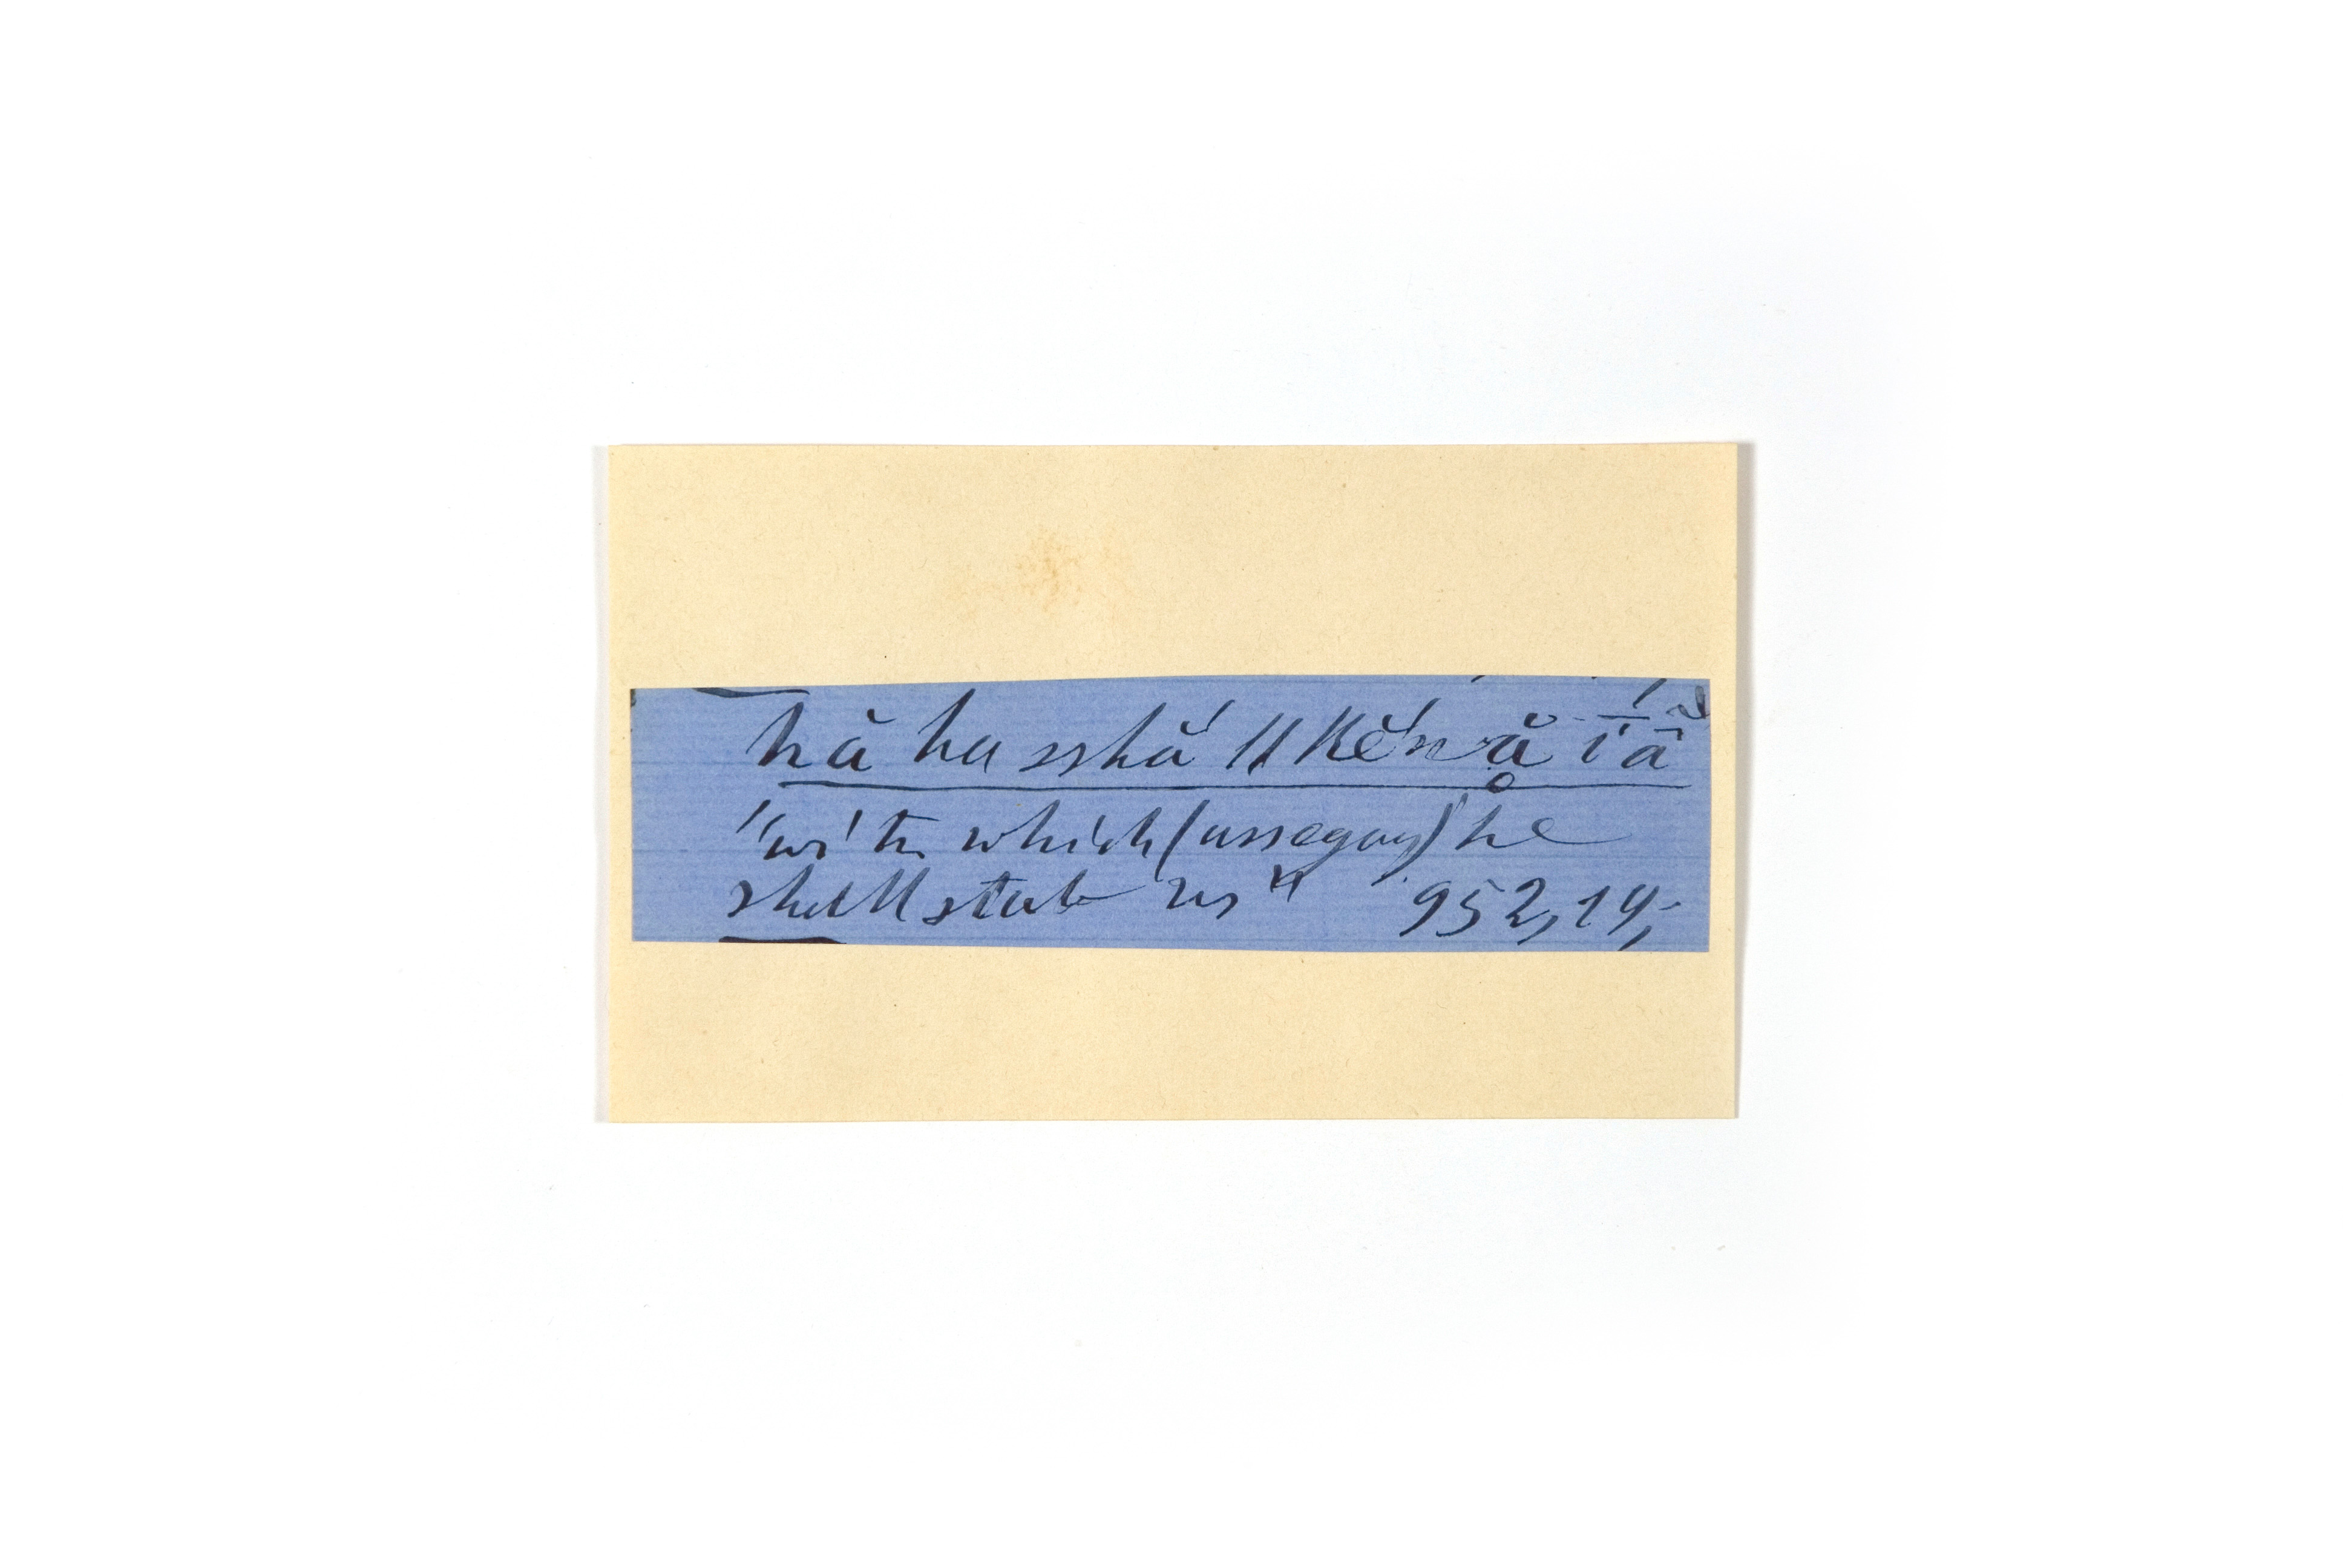 hă ha sshắ ǁkĕ́n å̆ ī́ ā̆
"with which (assegay) he
shall stab us" 952,14,